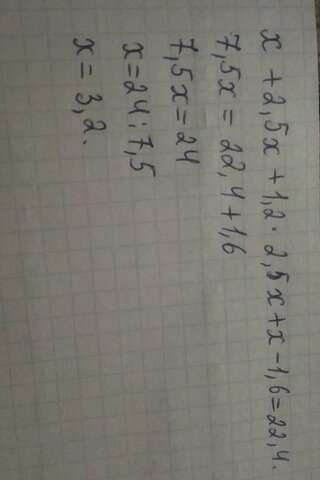 x + 2,5x + 1,2 · 2,5x + x - 1,6 = 22,4.
7,5x = 22,4 + 1,6
7,5x = 24
x = 24 : 7,5
x = 3,2.